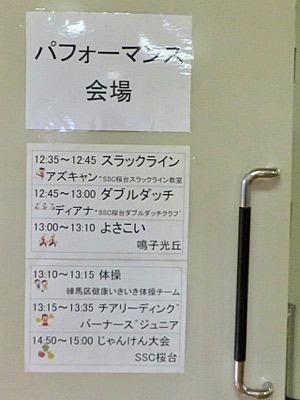 パフォーマンス
会場
12:35～12:45 スラックライン
アズキャン"SSC桜台スラックライン教室
12:45～13:00 ダブルダッチ
ディアナ"SSC桜台ダブルダッチクラブ"
13:00～13:10 よさこい
鳴子光丘
13:10～13:15 体操
練馬区健康いきいき体操チーム
13:15～13:35 チアリーディング
バーナーズジュニア
14:50～15:00 じゃんけん大会
SSC桜台